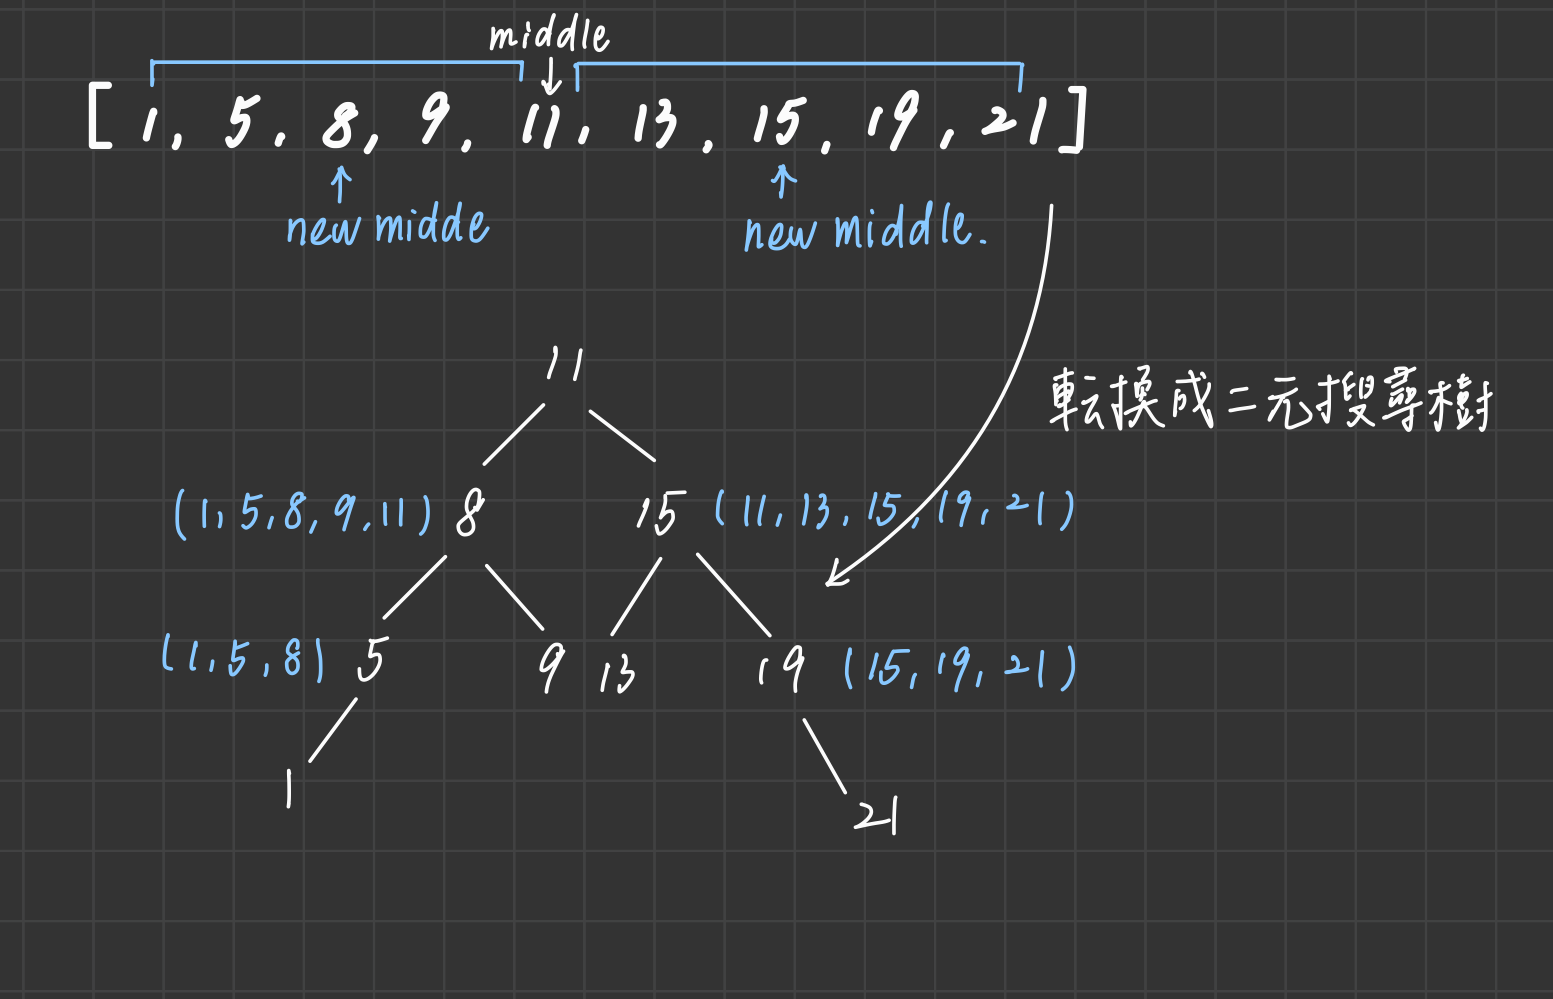 middle
[1, 5, 8, 9, 11, 13, 15, 19, 21]
new midde
new middle.
11
転換成二元搜尋樹
(1,5,8,9,11) 8 15 (11,13,15,19,21)
(1,5,8) 5 9 13 19 (15,19,21)
1
21